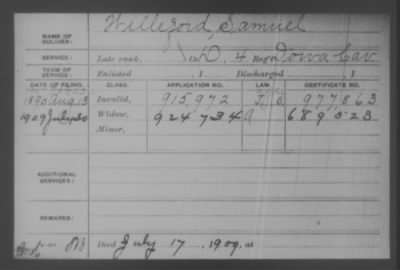 Willeford, Samuel
NAME OF SOLDIER:
SERVICE: Late rank, Co. D, 4 Reg't Iowa Cav.
TERM OF SERVICE: Enlisted , 1 Discharged , 1
DATE OF FILING. CLASS. APPLICATION NO. LAW. CERTIFICATE NO.
1890 Aug. 13 Invalid, 915,972 977,863
1909 July 30 Widow, 924734 689523
Minor,
ADDITIONAL SERVICES:
REMARKS:
Died July 17, 1909, at